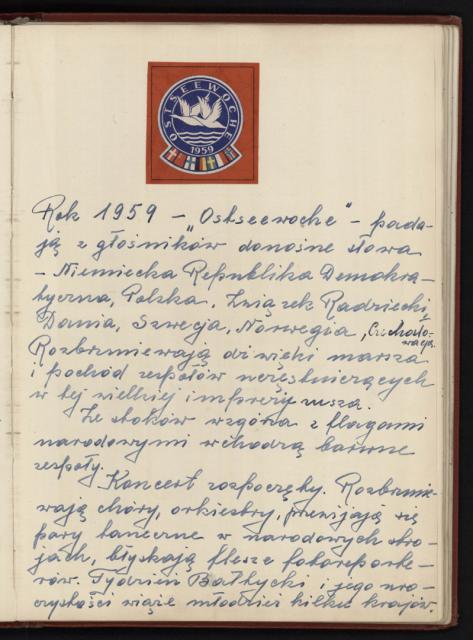 OSTSEEWOCHE
1959
Rok 1959 – „Ostseewoche" – pada-
ją z głośników donośne słowa
– Niemiecka Republika Demokra-
tyczna, Polska, Związek Radziecki,
Dania, Szwecja, Norwegia, Czechosło-
wacja.
Rozbrzmiewają dźwięki marsza
i pochód zespołów uczestniczących
w tej wielkiej imprezy rusza.
Ze stoków wzgórza z flagami
narodowymi wchodzą barwne
zespoły.
Koncert rozpoczęty. Rozbrzmie-
wają chóry, orkiestry, przewijają się
pary taneczne w narodowych stro-
jach, błyskają flesze fotoreporte-
rów. Tydzień Bałtycki i jego uro-
czystości wiąże młodzież kilku krajów.